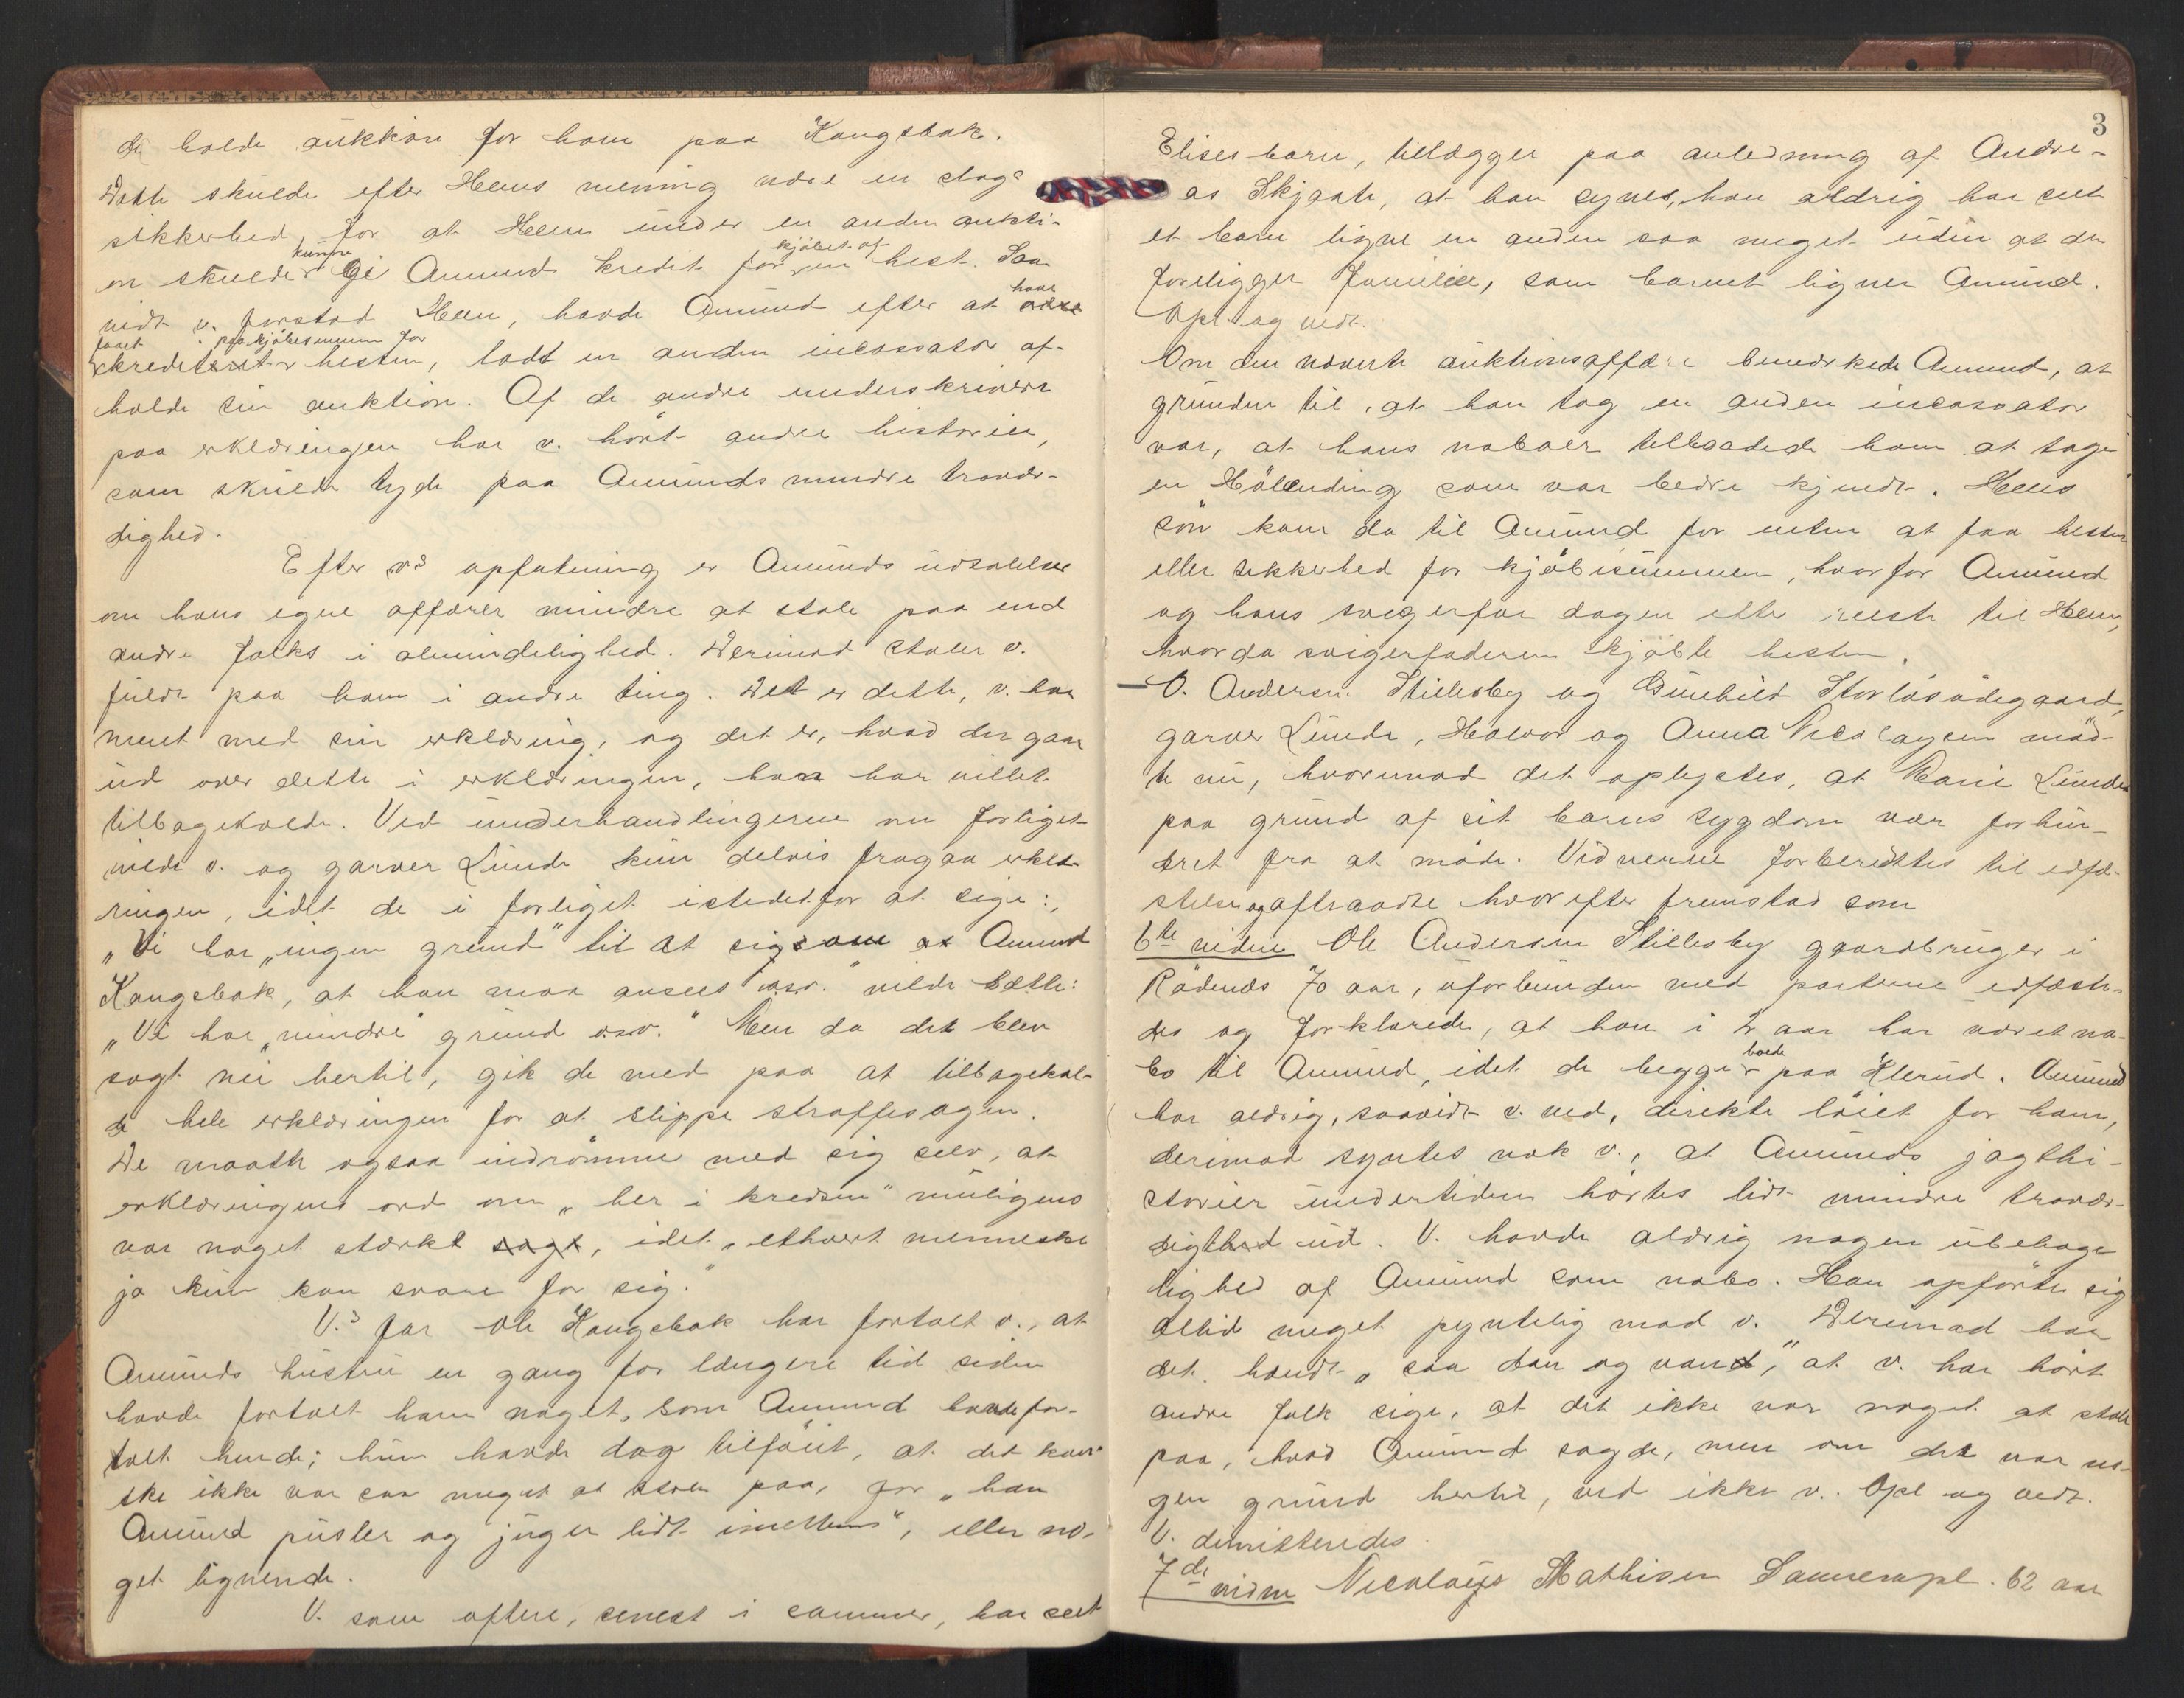 de holde aukkion for ham paa Kangsbak.
Dette skulde efter Heens mening være en slags
sikkerhed, for at Heen under en anden aukti-
on skulde kunne gi Amund kredit for kjöbet af en hest. Saa
vidt v. forstod Heen, havde Amund efter at have
faaet kredit paa kjöbesummen for hesten, ladt en anden incassator af-
holde sin auktion. Af de andre underskrivere
paa erklæringen har v. hört andre historier,
som skulde tyde paa Amunds mindre trovær-
dighed.
Efter v.s opfatning er Amunds udtalelser
om hans egne affærer mindre at stole paa end
andre folks i almindelighed. Derimod stoler v.
fuldt paa ham i andre ting. Det er dette, v. har
ment med sin erklæring, og det er, hvad der gaar
ud over dette i erklæringen, han har villet
tilbagekalde. Ved underhandlingerne om forliget
vilde v. og garver Lunde kun delvis fragaa erklæ-
ringen, idet de i forliget istedetfor at sige:,
„Vi har „ingen grund" til at sige om Amund
Kangsbak, at han maa ansees o.s.v." vilde sætte:
„Vi har „mindre" grund o.s.v." Men da det blev
sagt nei hertil, gik de med paa at tilbagekal-
de hele erklæringen for at slippe straffesagen.
De maatte ogsaa indrömme med sig selv, at
erklæringens ord om „her i kredsen" muligens
var noget stærkt sagt, idet „ethvert menneske
ja kun kan svare for sig."
V.s far Ole Kangsbak har fortalt v., at
Amunds hustru en gang for længere tid siden
havde fortalt ham noget, som Amund havde for-
talt hende; hun havde dog tilföiet, at det kan-
ske ikke var saa meget at stole paa, for „han
Amund pusler og juger lidt imellem", eller no-
get lignende.
V. som oftere, senest i sommer, har seet
3
Elises barn, tillægger paa anledning af Andre-
as Skjaate, at han synes, han aldrig har seet
et barn ligne en anden saa meget uden at der
foreligger familie, som barnet ligner Amund.
Opl. og vedt.
Om den nævnte auktionsaffære bemærkede Amund, at
grunden til, at han tog en anden incassator
var, at hans naboer tilraadede ham at tage
en Hölending som var bedre kjendt. Heens
sön kom da til Amund for enten at faa hesten
eller sikkerhed for kjöbesummen, hvorfor Amund
og hans svigerfar dagen efter reiste til Heen,
hvor da svigerfaderen kjöbte hesten.
— O. Andersen Stillesby og Gunhild Storlösödegaard,
garver Lunde, Halvor og Anna Nicolaysen möd-
te nu, hvorimod det oplystes, at Marie Lunde
paa grund af sit barns sygdom var forhin-
dret fra at möde. Vidnerne forberedtes til edfæ-
stelse og aftraadte hvorefter fremstod som
6te vidne Ole Andersen Stillesby gaardbruger i
Rödenæs 70 aar, uforbunden med parterne edfæste-
des og forklarede, at han i 2 aar har været na-
bo til Amund, idet de begge boede paa Klerud. Amund
har aldrig, saavidt v. ved, direkte löiet for ham,
derimod syntes nok v., at Amunds jagthi-
storier undertiden hörtes lidt mindre trovær-
dighed ud. V. havde aldrig nogen ubehage-
lighed af Amund som nabo. Han opförte sig
altid meget pyntelig mod v. Derimod har
det hændt „saa dan og vand," at v. har hört
andre folk sige, at det ikke var noget at stole
paa, hvad Amund sagde, men om det var no-
gen grund hertil, ved ikke v. Opl og vedt.
V. dimitteredes.
7de vidne Nicolays Mathisen 62 aar